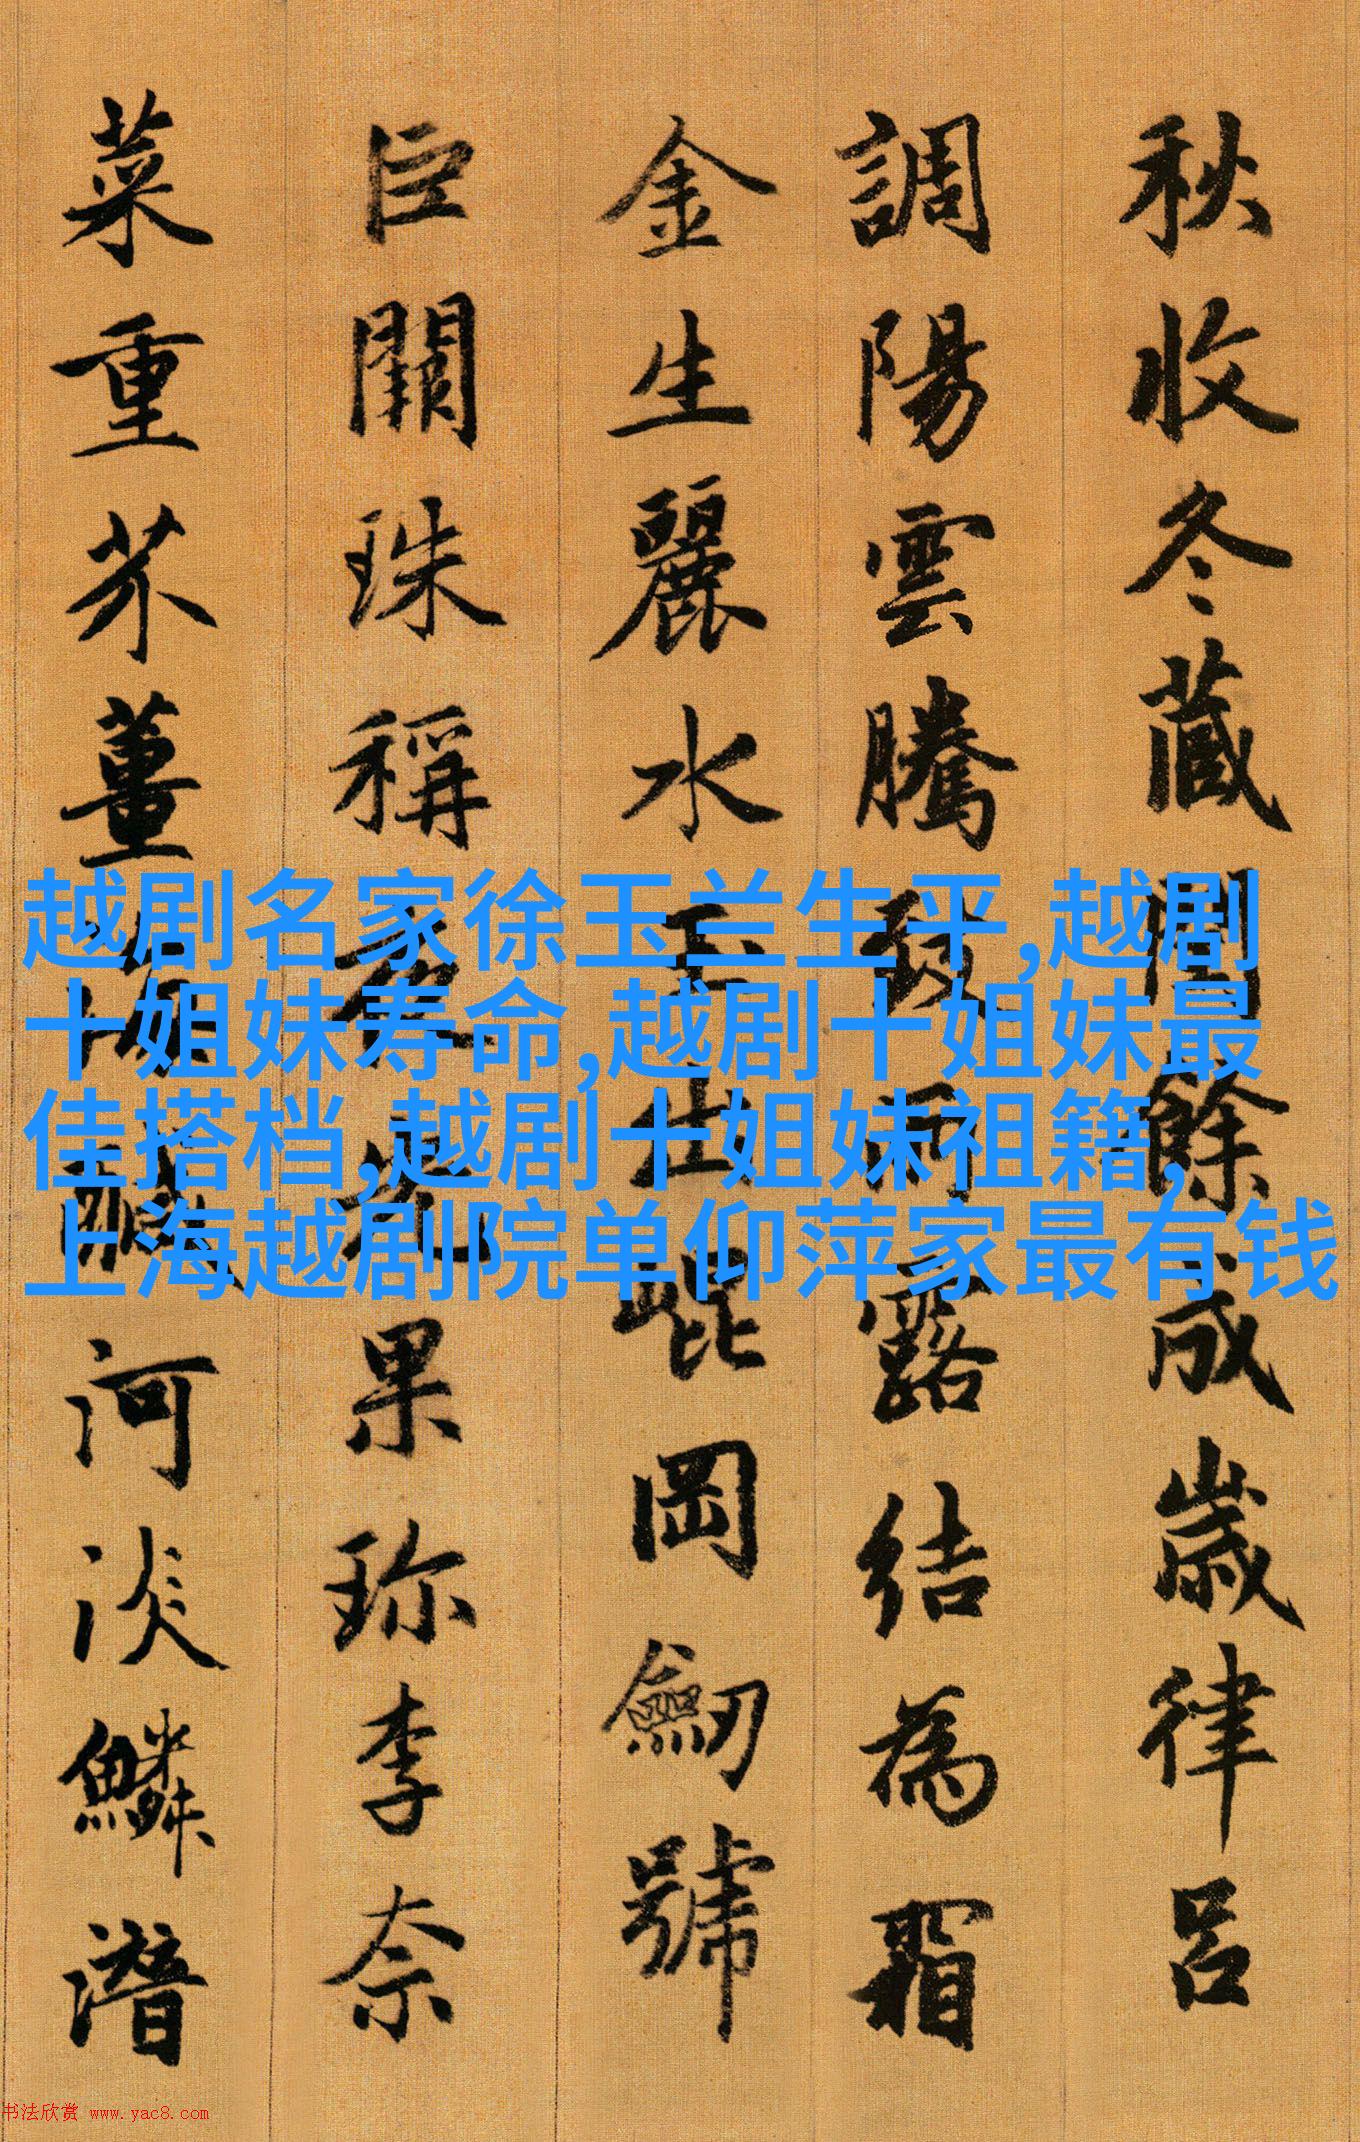 秋收冬藏閏餘成歲律呂
調陽雲騰致雨露結為霜
金生麗水玉出崐岡劔號
巨闕珠稱夜光果珍李奈
菜重芥薑海醎河淡鱗潛
越剧名家徐玉兰生平,越剧
十姐妹寿命,越剧十姐妹最
佳搭档,越剧十姐妹祖籍,
上海越剧院单仰萍家最有钱
书法欣赏 www.yac8.com